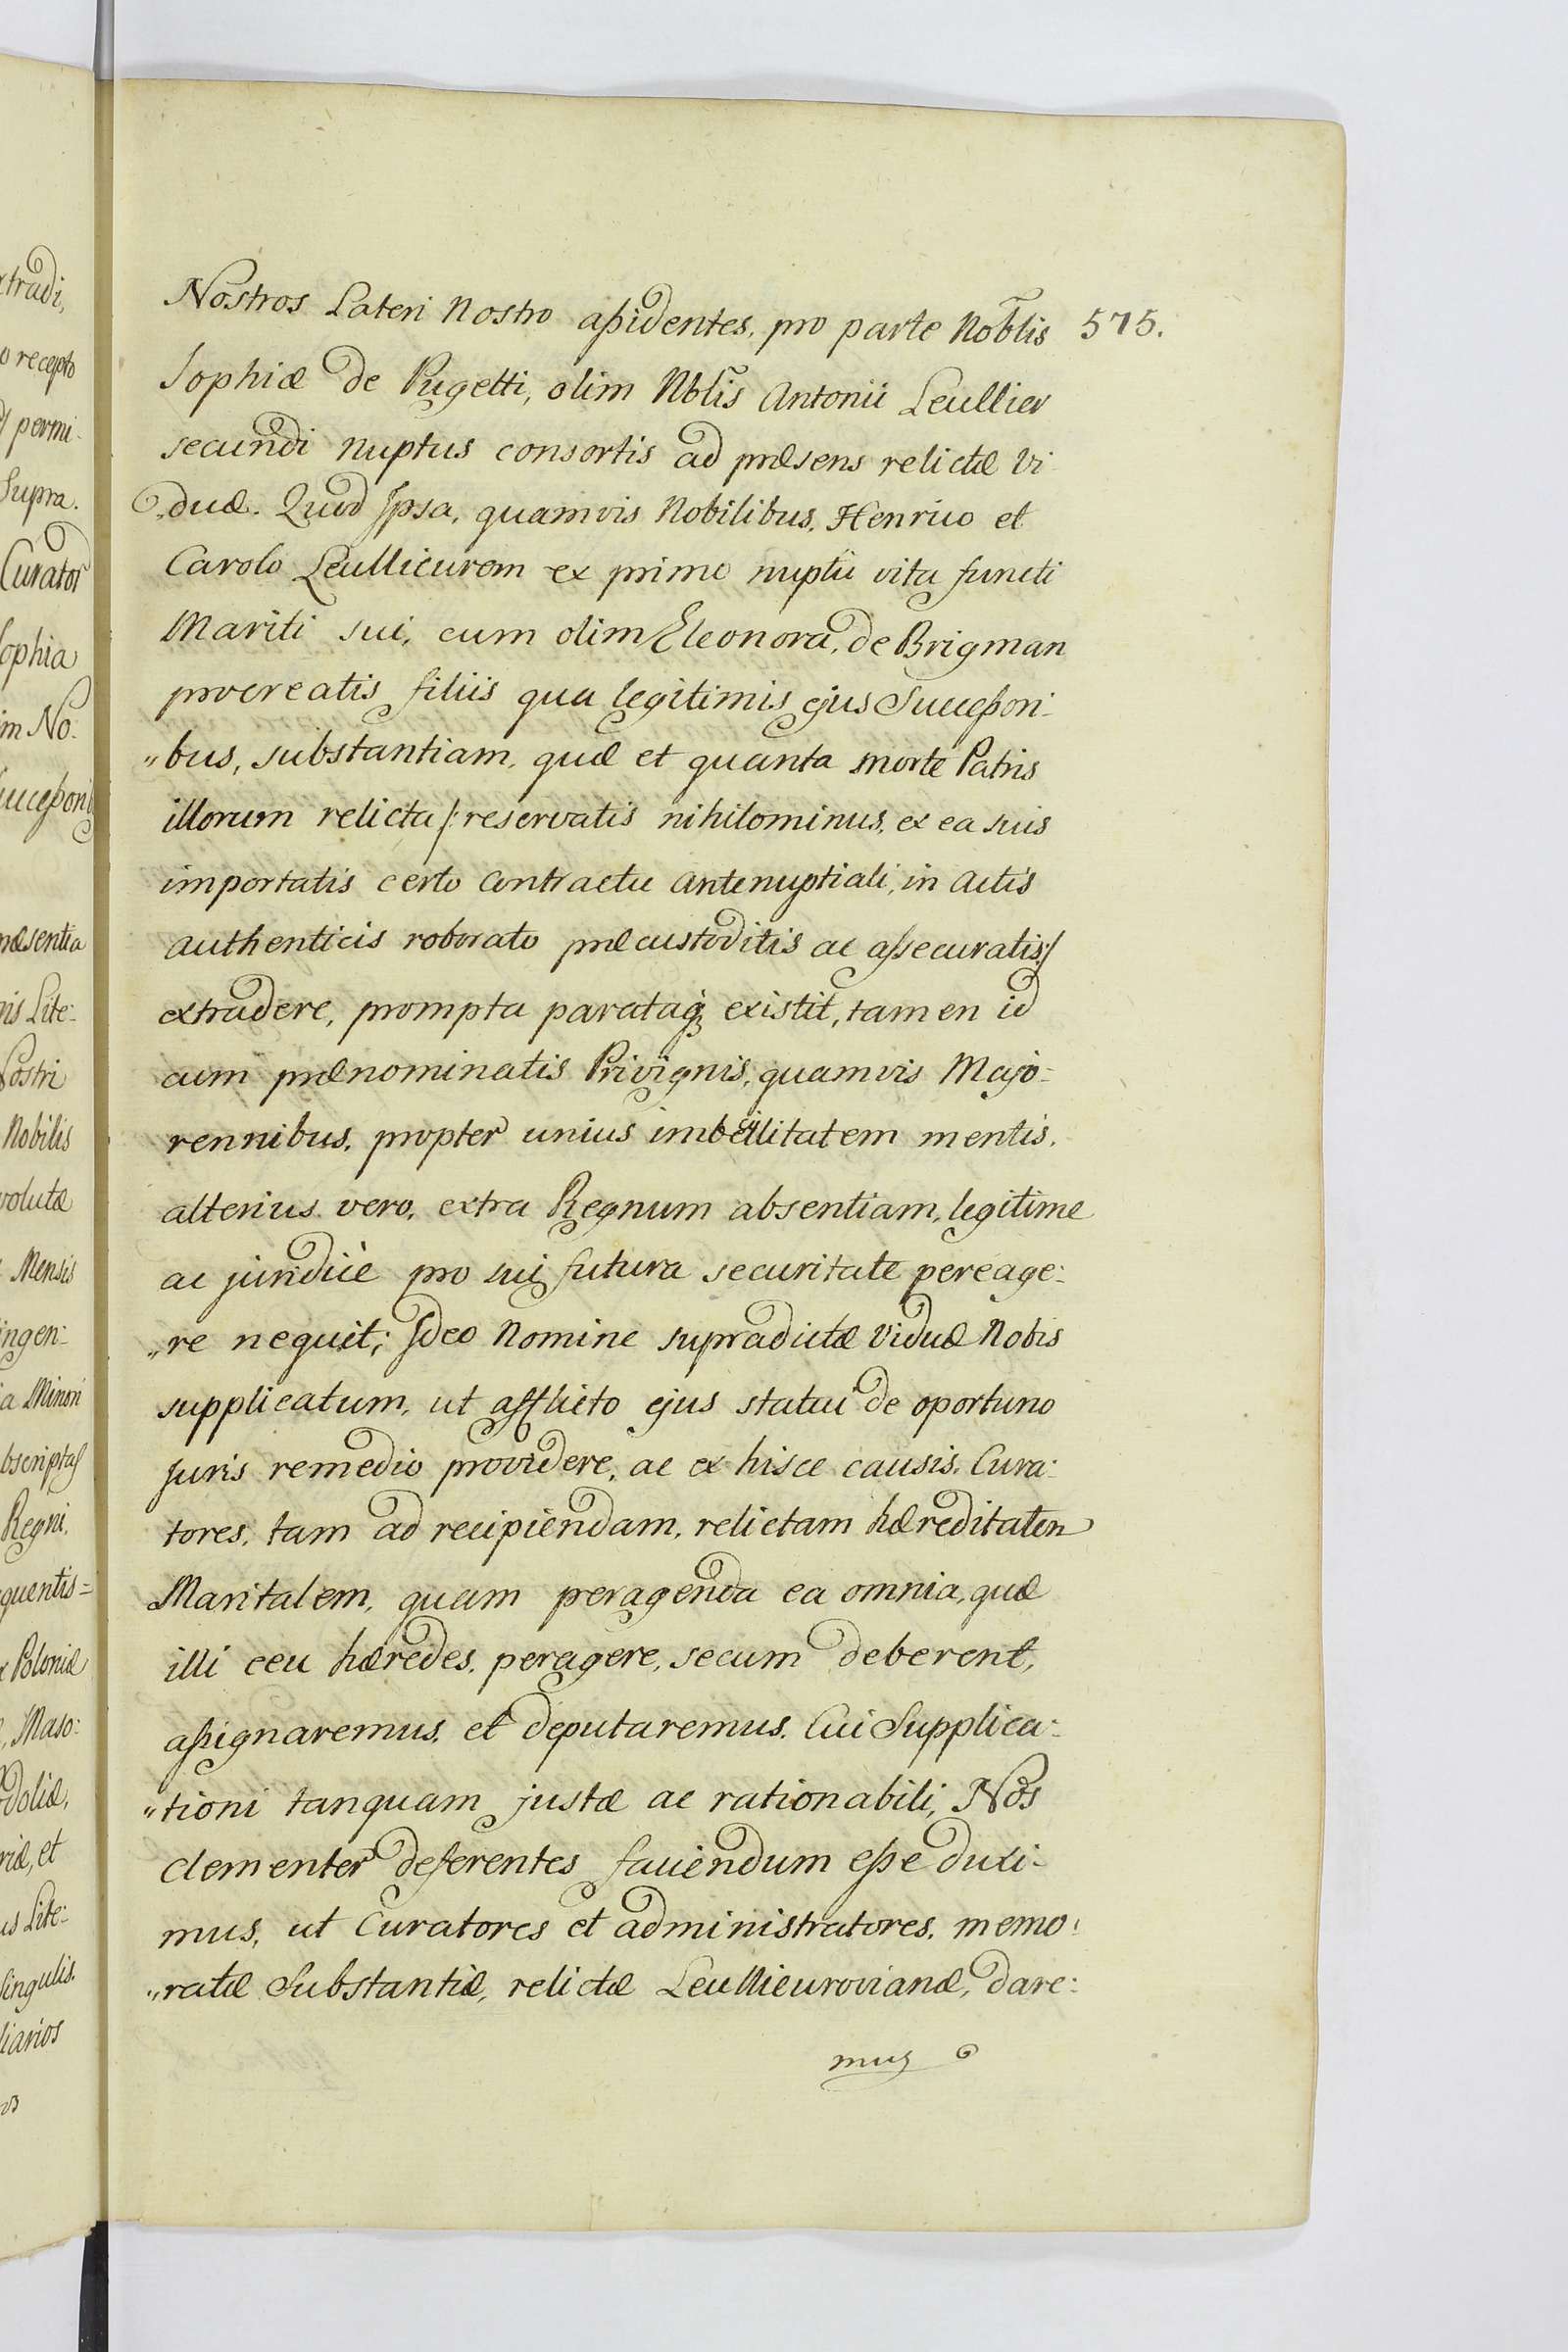 Nostros Lateri Nostro aßidentes, pro parte Nob̃lis 575.
Sophiæ de Pugetti, olim Nbl̃is Antonii Leullier
secundi nuptus consortis ad præsens relictæ Vi-
duæ. Quod Ipsa, quamvis Nobilibus, Henrico et
Carolo Leullieurom ex primo nuptu vita functi
Mariti sui, cum olim Eleonora, de Brigman
procreatis filiis qua legitimis ejus Succeßori-
„bus, substantiam, quæ et quanta morte Patris
illorum relicta /: reservatis nihilominus, ex ea suis
importatis certo Contractu antenuptiali, in actis
authenticis roborato præcustoditis ac assecuratis :/
extradere, prompta parataq; existit, tamen id
cum prænominatis Privignis, quamvis Majo-
rennibus, propter unius imbecillitatem mentis,
alterius vero, extra Regnum absentiam, legitime
ac juridicè pro sui futura securitate pereage-
„re nequit; Ideo Nomine supradictæ Viduæ Nobis
supplicatum, ut afflicto ejus statui de oportuno
Juris remedio providere, ac ex hisce causis, Cura-
tores, tam ad recipiendam, relictam hæreditatem
Maritalem, quam peragenda ea omnia, quæ
illi ceu hæredes, peragere, secum deberent,
aßignaremus, et deputaremus. Cui Supplica-
„tioni tanquam justæ ac rationabili, Nos
clementer deferentes faciendum eße duxi-
mus, ut Curatores et administratores, memo-
„ratæ Substantiæ, relictæ Leullieurovianæ, dare-
mus
tradi,
o recepto
permi-
Supra.
Curator
Sophia
im No-
ucceßori
præsentia
nis Lite-
Nostri
Nobilis
volutæ
Mensis
ingen-
a Minori
bscriptas
Regni,
quentis=
x Poloniæ
, Maso-
doliæ,
riæ, et
us Lite-
Singulis.
liarios